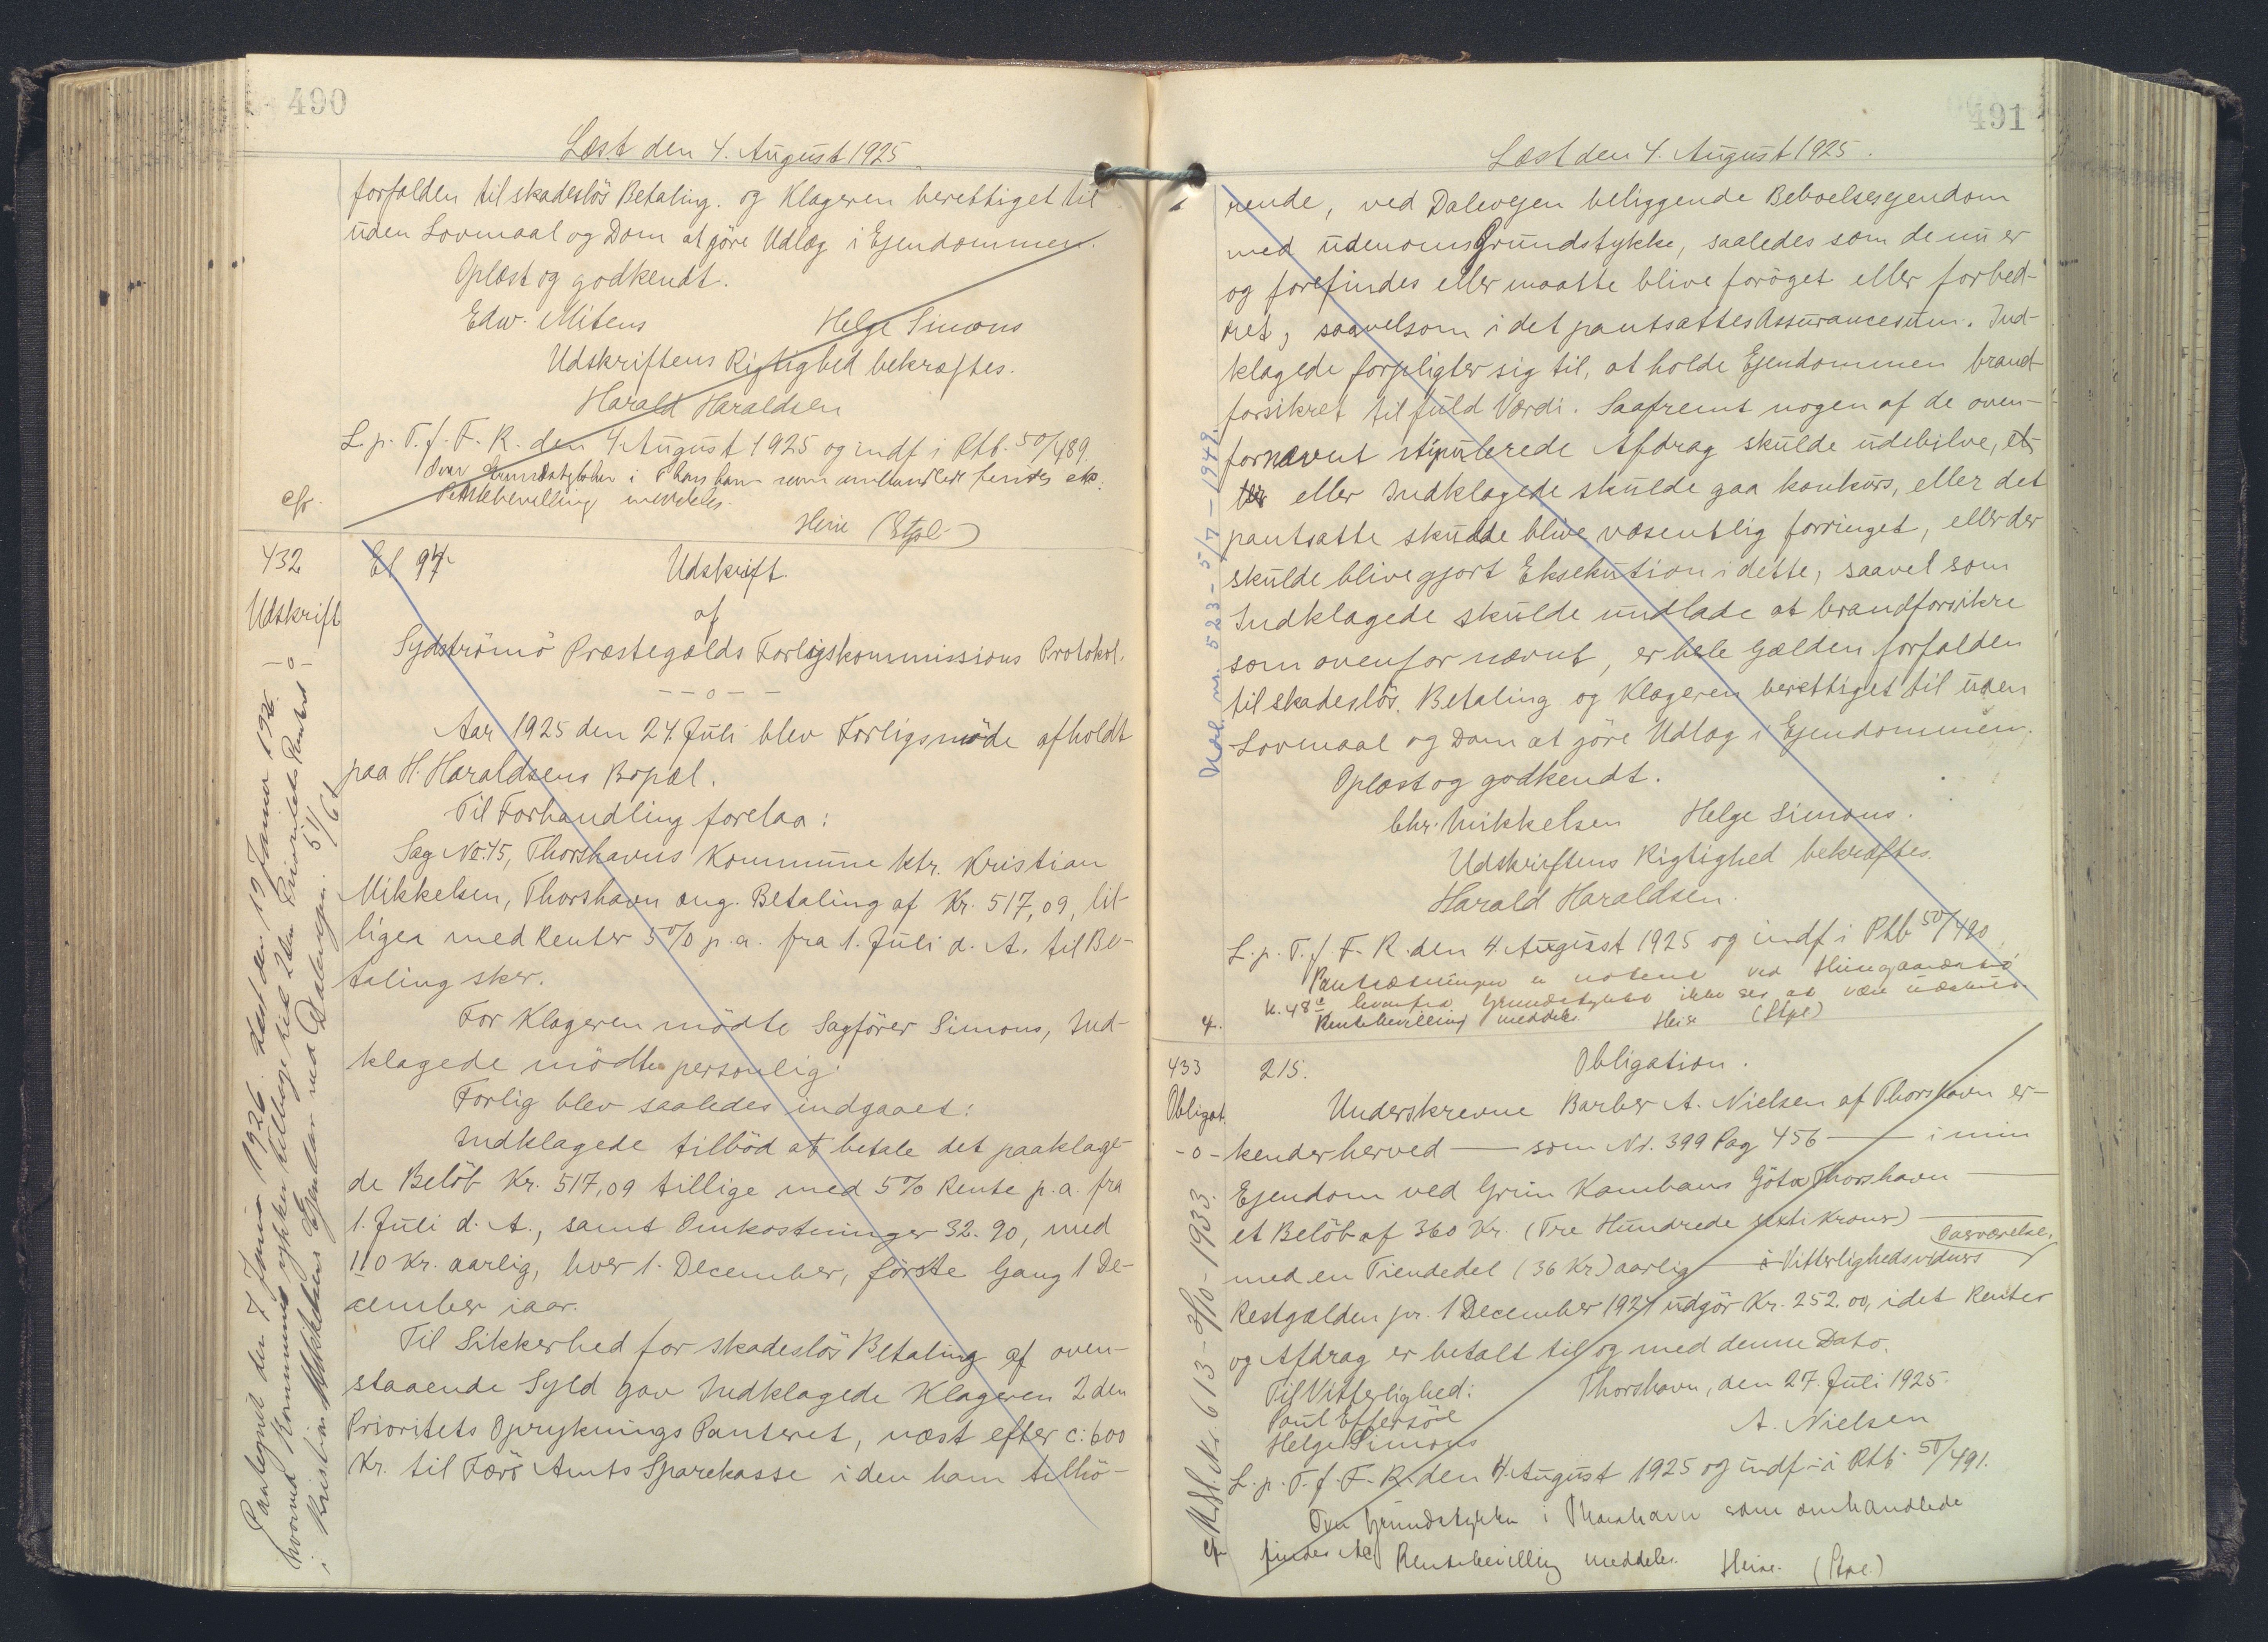 490
Læst den 4. August 1925
forfalden til skadeslös Betaling. og Klageren berettiget til
uden Lovmaal og Dom at göre Udlæg i Ejendommen.
Oplæst og godkendt.
Edw. Mitens Helge Simons
Udskriftens Rigtighed bekræftes.
Harald Haraldsen
L. p. T. f. F. R. den 4 August 1925 og indf i Ptb. 50/489.
Over Grundstykker i Thorshavn som omhandlede findes etc.
cfr. Rentebevilling meddeles.
Heise (Stpl.)
432 97 Udskrift.
Udskrift af
-o- Sydströmö Præstegælds Forligskommissions Protokol.
--o--
Aar 1925 den 24. Juli blev Forligsmöde afholdt
paa H. Haraldsens Bopæl.
Til Forhandling forelaa:
Sag No. 45, Thorshavns Kommune ktr. Kristian
Mikkelsen, Thorshavn ang. Betaling af Kr. 517,09, til-
ligea med Renter 5% p.a. fra 1. Juli d. A. til Be-
taling sker.
For Klageren mödte Sagförer Simons, Ind-
klagede mödte personlig.
Forlig blev saaledes indgaaet:
Indklagede tilböd at betale det paaklage-
de Belöb Kr. 517,09 tillige med 5% Rente p.a. fra
1. Juli d. A., samt Omkostninger 32.90, med
110 Kr. aarlig, hver 1. December, förste Gang 1 De-
cember iaar.
Til Sikkerhed for skadeslös Betaling af oven-
staaende Syld gav Indklagede Klageren 2den
Prioritets Opryknings Panteret, næst efter c: 600
Kr. til Færö Amts Sparekasse i den ham tilhö-
hvorved Kommune rykker tilbage til 2den Prioritets Panteret
i Kristian Mikkelsens Ejendom ved Dalavejen. 51/61
491
Læst den 4. August 1925.
rende, ved Dalevejen beliggende Beboelsesejendom
med udenoms Grundstykke, saaledes som de nu er
og forefindes eller maatte blive foröget eller forbed-
ret, saavelsom i det pantsattes Assurancesum. Ind-
klagede forpligter sig til, at holde Ejendommen brand-
forsikret til fuld Værdi. Saafremt nogen af de oven-
fornævnt stipulerede Afdrag skulde udebilve, et-
eller Indklagede skulde gaa konkurs, eller det
pantsatte skulde blive væsentlig forringet, eller der
skulde blive gjort Eksekution i dette, saavel som
Indklagede skulde undlade at brandforsikre
som ovenfor nævnt, er hele Gælden forfalden
til skadeslös. Betaling og Klageren berettiget til uden
Lovmaal og Dom at göre Udlæg i Ejendommen.
Oplæst og godkendt.
Chr. Mikkelsen Helge Simons.
Udskriftens Rigtighed bekræftes.
Harald Haraldsen.
L. p. T. f. F. R. den 4 August 1925 og indf i Ptb 50/490
Pantsætningen er noteret ved
K. 48c hvorfra Grundstykket ikke ses at være udskilt.
cfr. Rentebevilling meddeles. Heise (Stpl)
Kol. nr. 523 - 5/7 - 1949.
433 215. Obligation.
Obligat. Underskrevne Barber A. Nielsen af Thorshavn er-
-o- kender herved — som Nr. 399 Pag 456 — i min
Ejendom ved Grim Kambans Göta Thorshavn —
et Belöb af 360 Kr. (Tre Hundrede sexti Kroner) —
Overværelse.
med en Tiendedel (36 Kr) aarlig — Vitterlighedsvidners
Restgælden pr. 1 December 1924 udgör Kr. 252.00, idet Renter
og Afdrag er betalt til og med denne Dato.
Til Vitterlighed: Thorshavn, den 27. Juli 1925.
Poul Effersöe
Helge Simons A. Nielsen
L. p. T. f. F. R. den 4. August 1925 og indf. i Ptb. 50/491.
Over Grundstykker i Thorshavn som omhandlede
cfr findes etc. Rentebevilling meddeles. Heise. (Stpl.)
Nr. 613 - 3/10 - 1933.